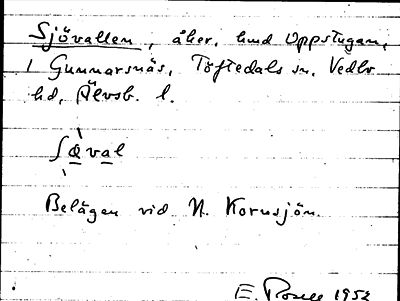 Sjövallen, åker, hmd Uppstugan,
1 Gunnarsnäs, Töftedals sn, Vedbo
hd, Älvsb. l.
ʃøval
Belägen vid N. Kornsjön.
E. 1952